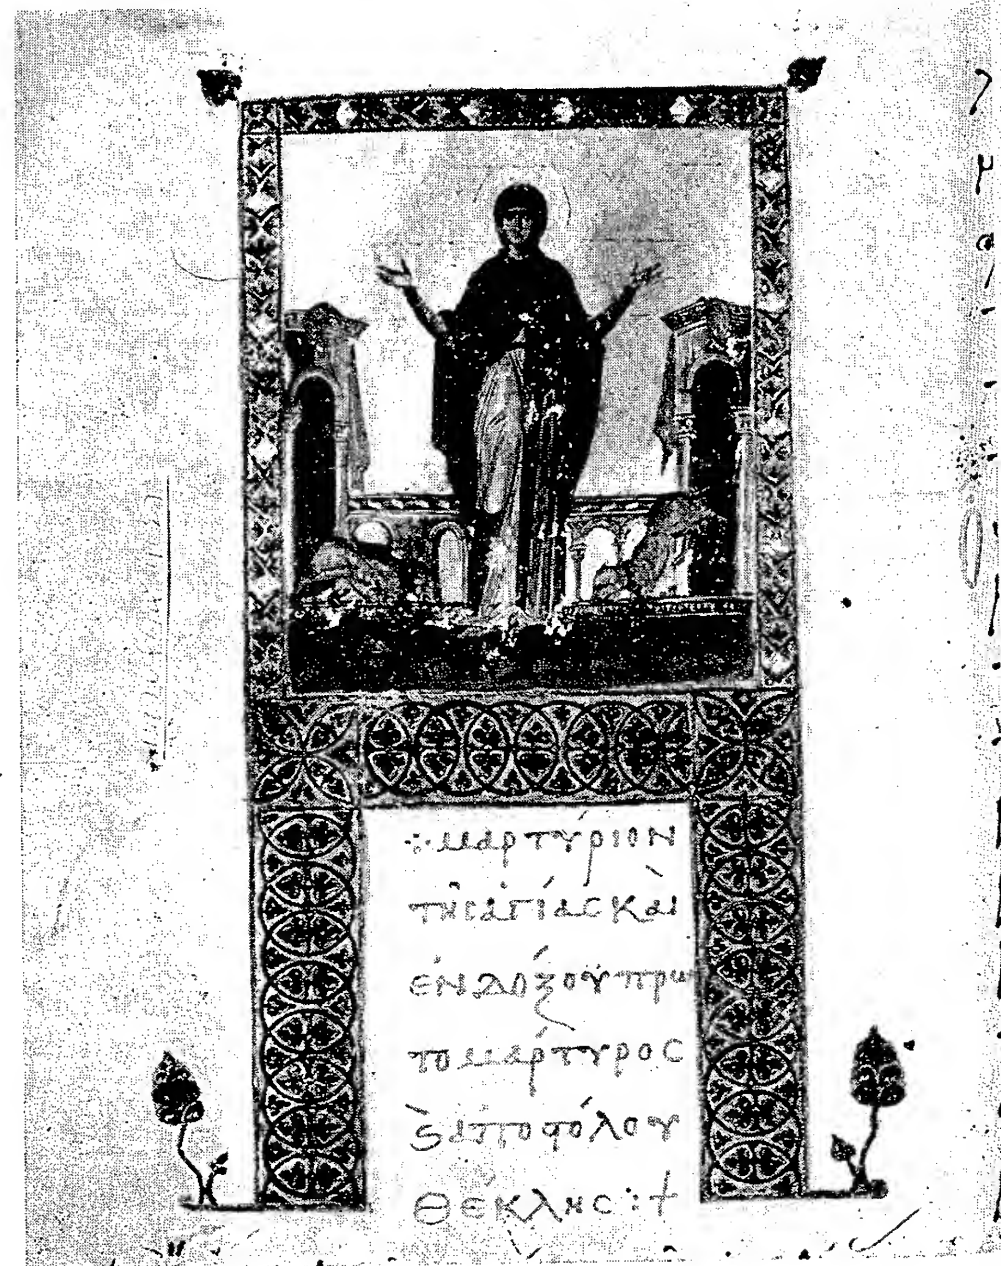 ⁘ μαρτύριον
τῆς ἁγίας καὶ
ἐνδόξου πρω
τομάρτυρος
ϗ ἀποστόλου
Θέκλης :+